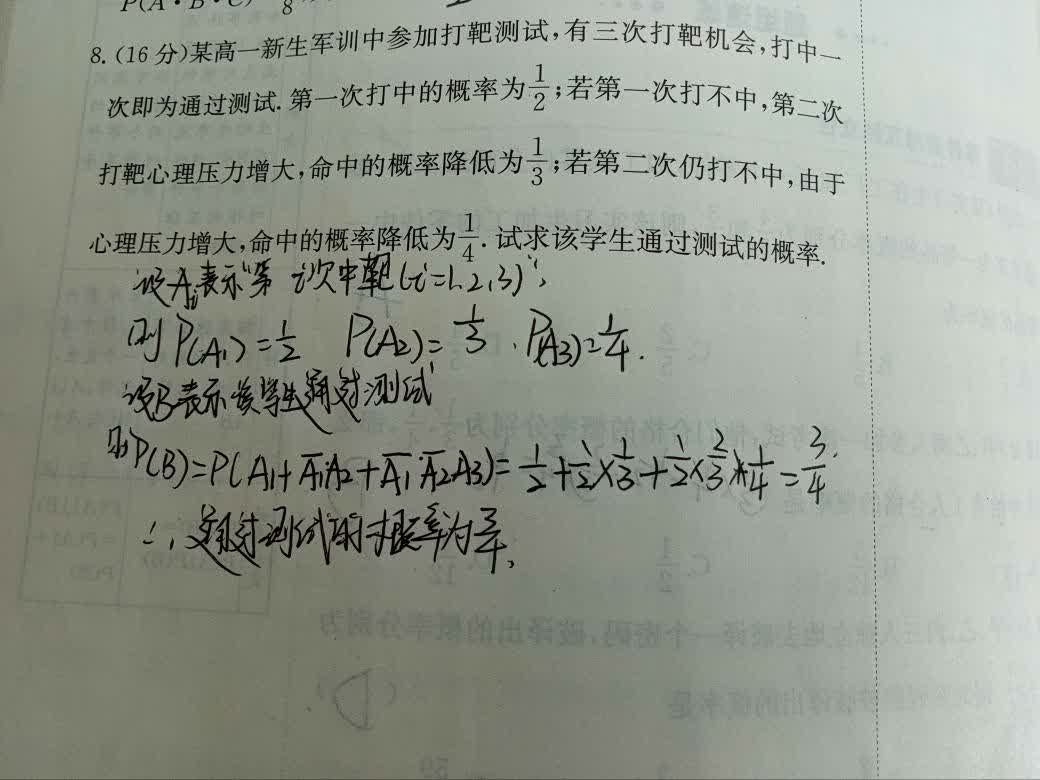 P(A·B·C) 8
8. (16 分)某高一新生军训中参加打靶测试,有三次打靶机会,打中一
次即为通过测试. 第一次打中的概率为1/2;若第一次打不中,第二次
打靶心理压力增大,命中的概率降低为1/3;若第二次仍打不中,由于
心理压力增大,命中的概率降低为1/4. 试求该学生通过测试的概率.
设Ai表示"第i次中靶(i=1,2,3)",
则P(A1)=1/2 P(A2)=1/3. P(A3)=1/4.
设B表示"该学生通过测试"
则P(B)=P(A1+A̅1A2+A̅1·A̅2A3)=1/2+1/2×1/3+1/2×2/3×1/4=3/4.
∴,通过测试的概率为3/4.